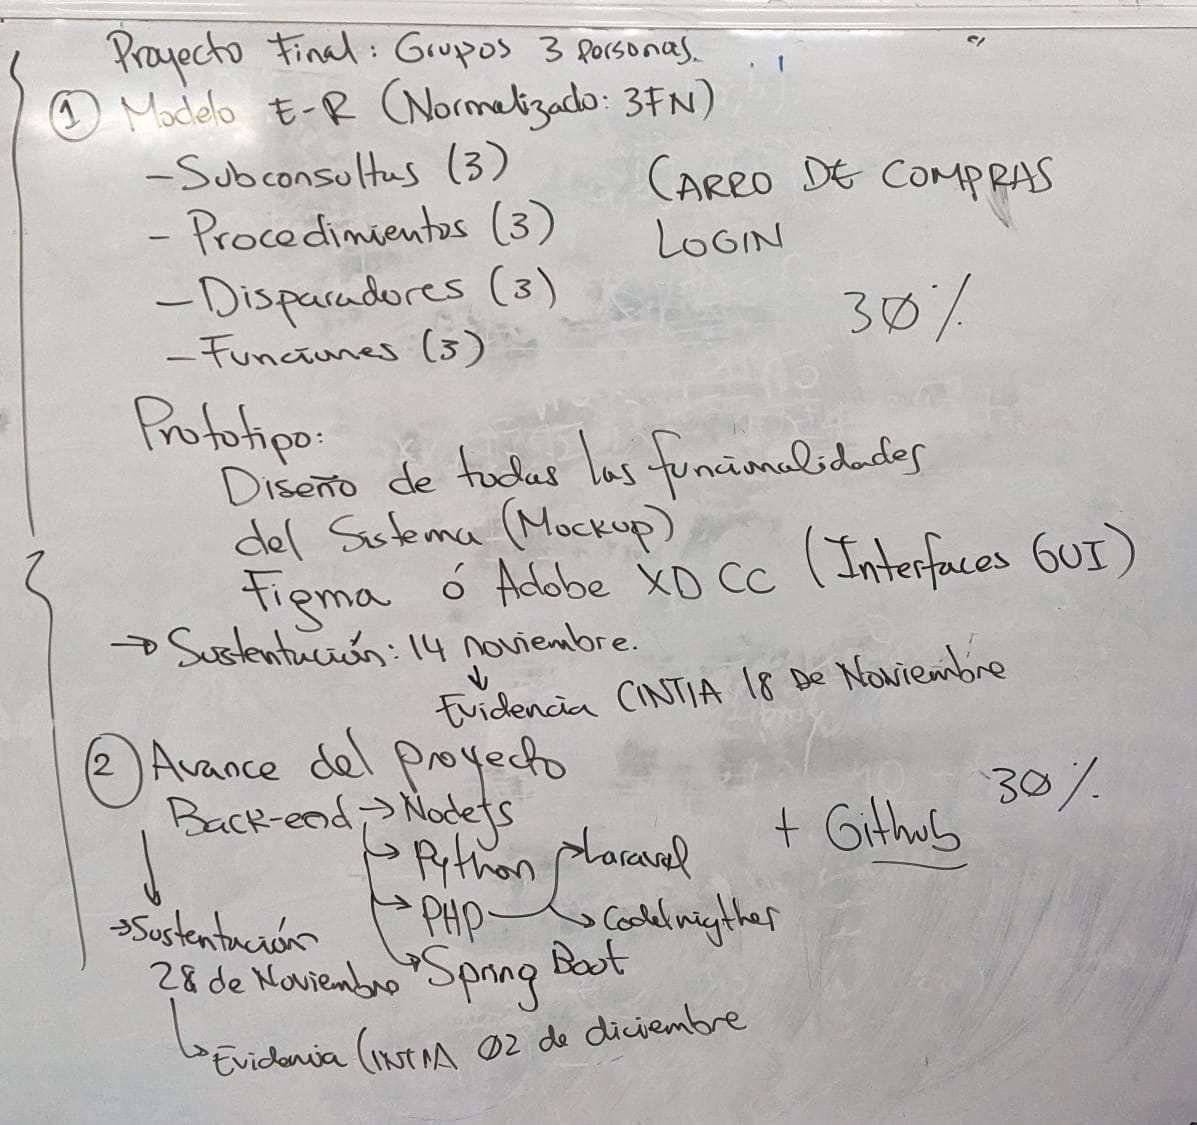 Proyecto Final: Grupos 3 personas.
① Modelo E-R (Normalizado: 3FN)
- Subconsultas (3)
- Procedimientos (3)
- Disparadores (3)
- Funciones (3)
CARRO DE COMPRAS
LOGIN
30%
Prototipo:
Diseño de todas las funcionalidades
del Sistema (Mockup)
Figma ó Adobe XD CC (Interfaces GUI)
→ Sustentución: 14 noviembre.
↓
Evidencia CINTIA 18 DE Noviembre
② Avance del proyecto
30%
Back-end → Nodejs
+ Github
→ Python
→ Laravel
→ PHP
→ CodeInigther
→ Spring Boot
→ Sustentación
28 de Noviembre
→ Evidencia CINTIA 02 de diciembre